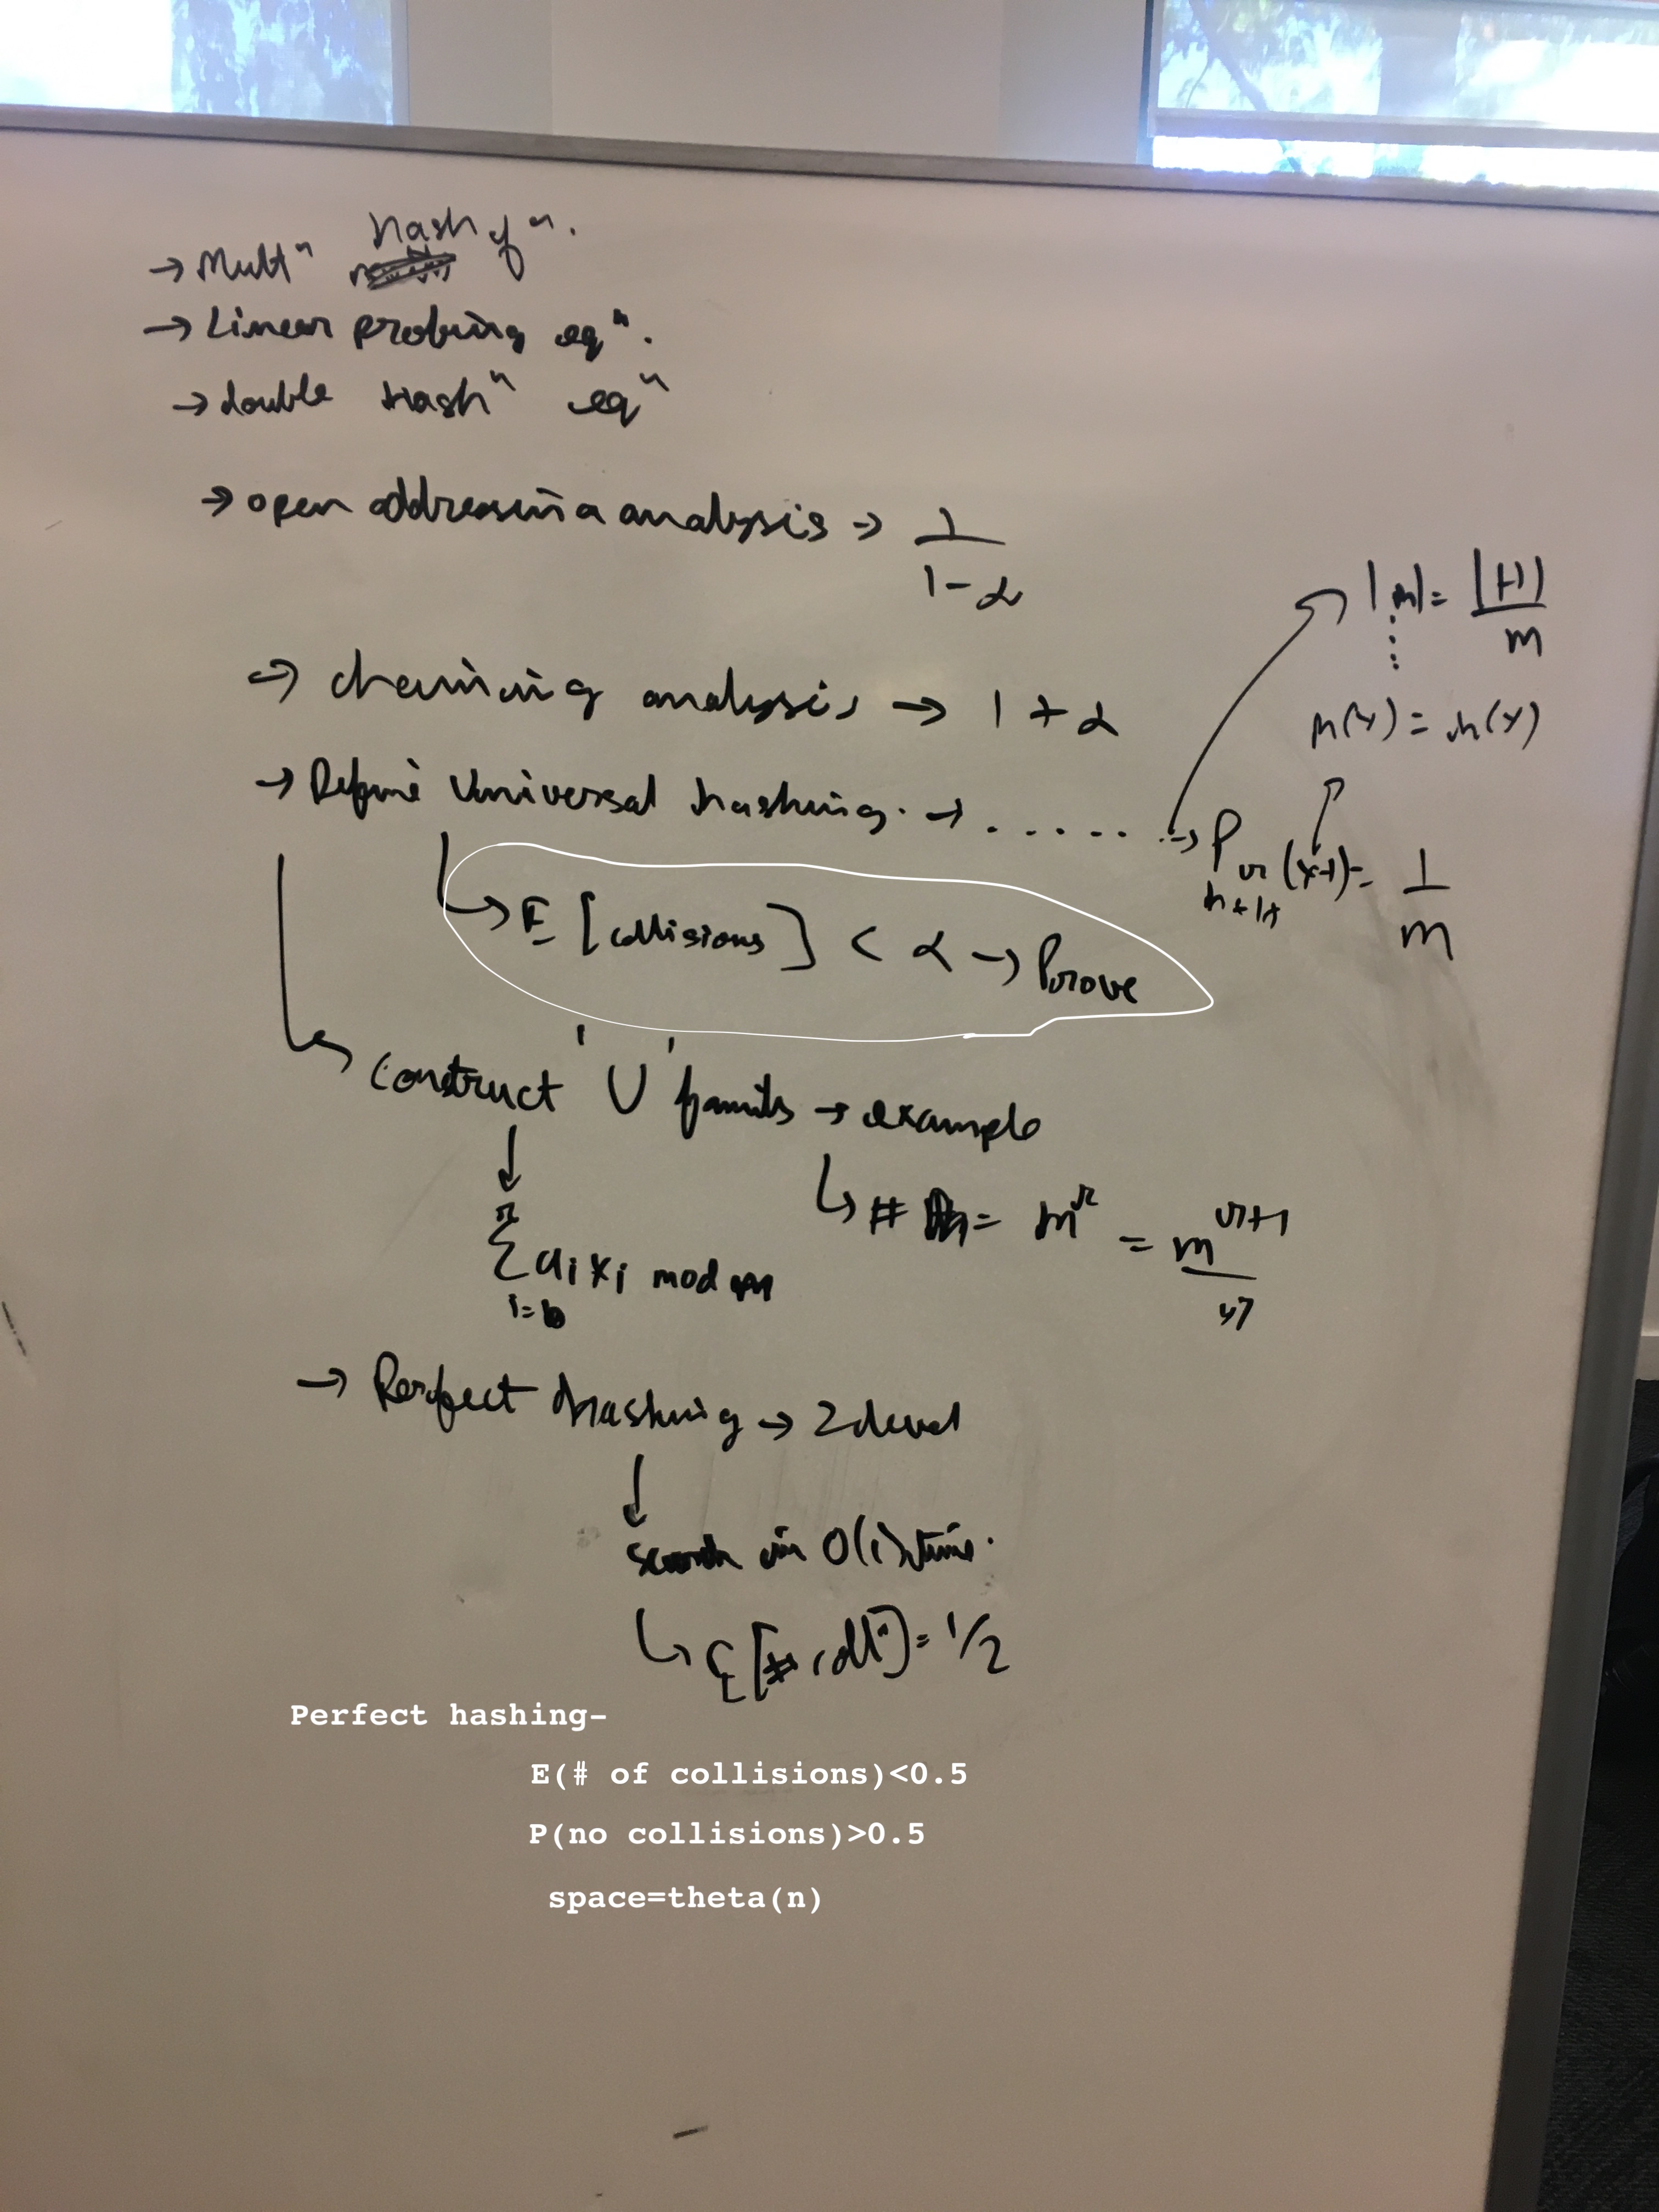 → Multⁿ hash fⁿ.
→ Linear probing eqⁿ.
→ double Hashⁿ eqⁿ
→ open addressing analysis → 1/(1-α)
→ chaining analysis → 1 + α
→ Define Universal hashing. → ..... →
|h| = |H|/m
h(x) = h(y)
= 1/m
↳ E [collisions] < α → Prove
↳ construct 'U' family → example
↓
Σ aᵢxᵢ mod m
i=0
r
↳ # = mʳ = mʳ⁺¹/m
→ Perfect hashing → 2 level
↓
search in O(1) time.
↳ E[# collⁿ] = 1/2
Perfect hashing-
E(# of collisions)<0.5
P(no collisions)>0.5
space=theta(n)